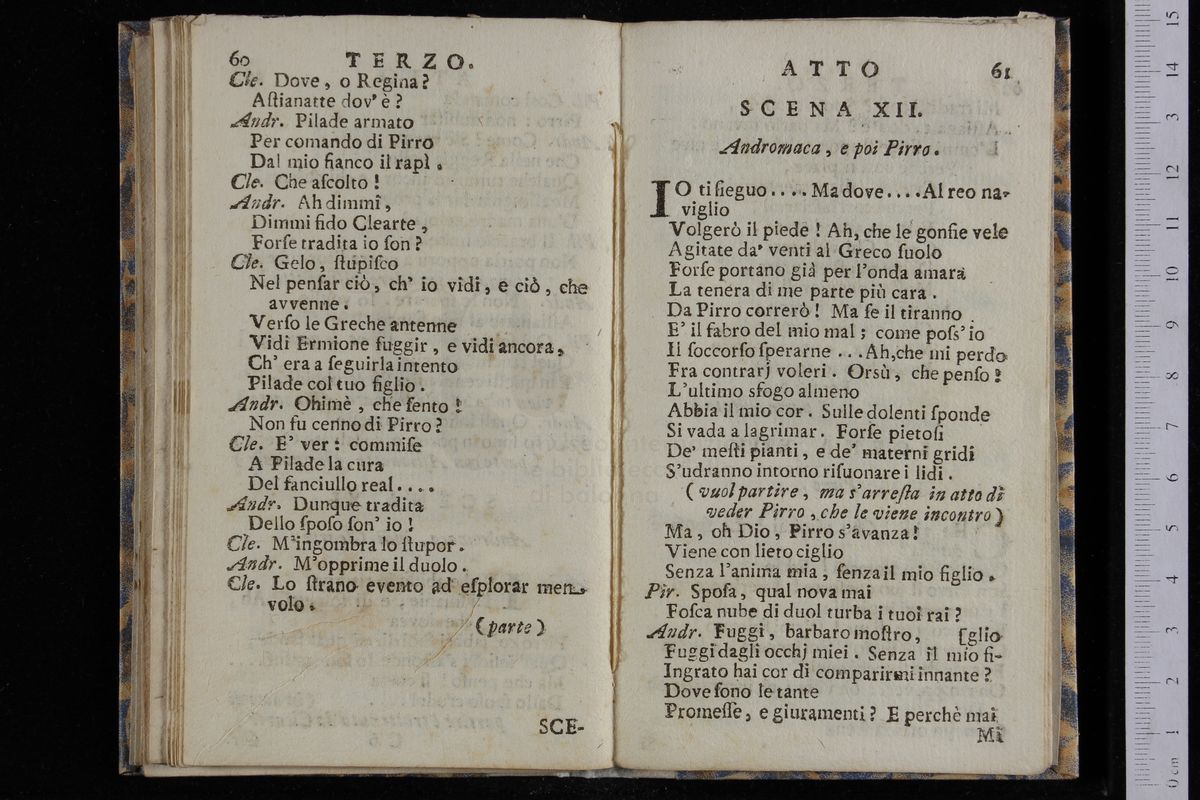 60 TERZO.
Cle. Dove, o Regina?
Aſtianatte dov' è?
Andr. Pilade armato
Per comando di Pirro
Dal mio fianco il rapì.
Cle. Che aſcolto!
Andr. Ah dimmi,
Dimmi fido Clearte,
Forſe tradita io ſon?
Cle. Gelo, ſtupiſco
Nel penſar ciò, ch' io vidi, e ciò, che
avvenne.
Verſo le Greche antenne
Vidi Ermione fuggir, e vidi ancora,
Ch' era a ſeguirla intento
Pilade col tuo figlio.
Andr. Ohimè, che ſento!
Non fu cenno di Pirro?
Cle. E' ver: commiſe
A Pilade la cura
Del fanciullo real....
Andr. Dunque tradita
Dello ſpoſo ſon' io!
Cle. M'ingombra lo ſtupor.
Andr. M'opprime il duolo.
Cle. Lo ſtrano evento ad eſplorar men
volo.
(parte)
SCE-
ATTO 61
SCENA XII.
Andromaca, e poi Pirro.
IO ti ſieguo.... Ma dove.... Al reo na-
viglio
Volgerò il piede! Ah, che le gonfie vele
Agitate da' venti al Greco ſuolo
Forſe portano già per l'onda amara
La tenera di me parte più cara.
Da Pirro correrò! Ma ſe il tiranno
E' il fabro del mio mal; come poſs' io
Il ſoccorſo ſperarne ... Ah, che mi perdo
Fra contrarj voleri. Orsù, che penſo?
L'ultimo sfogo almeno
Abbia il mio cor. Sulle dolenti ſponde
Si vada a lagrimar. Forſe pietoſi
De' meſti pianti, e de' materni gridi
S'udranno intorno riſuonare i lidi.
(vuol partire, ma s'arreſta in atto di
veder Pirro, che le viene incontro)
Ma, oh Dio, Pirro s'avanza!
Viene con lieto ciglio
Senza l'anima mia, ſenza il mio figlio.
Pir. Spoſa, qual nova mai
Foſca nube di duol turba i tuoi rai?
Andr. Fuggi, barbaro moſtro, [glio
Fuggi dagli occhj miei. Senza il mio fi-
Ingrato hai cor di comparirmi innante?
Dove ſono le tante
Promeſſe, e giuramenti? E perchè mai
Mi